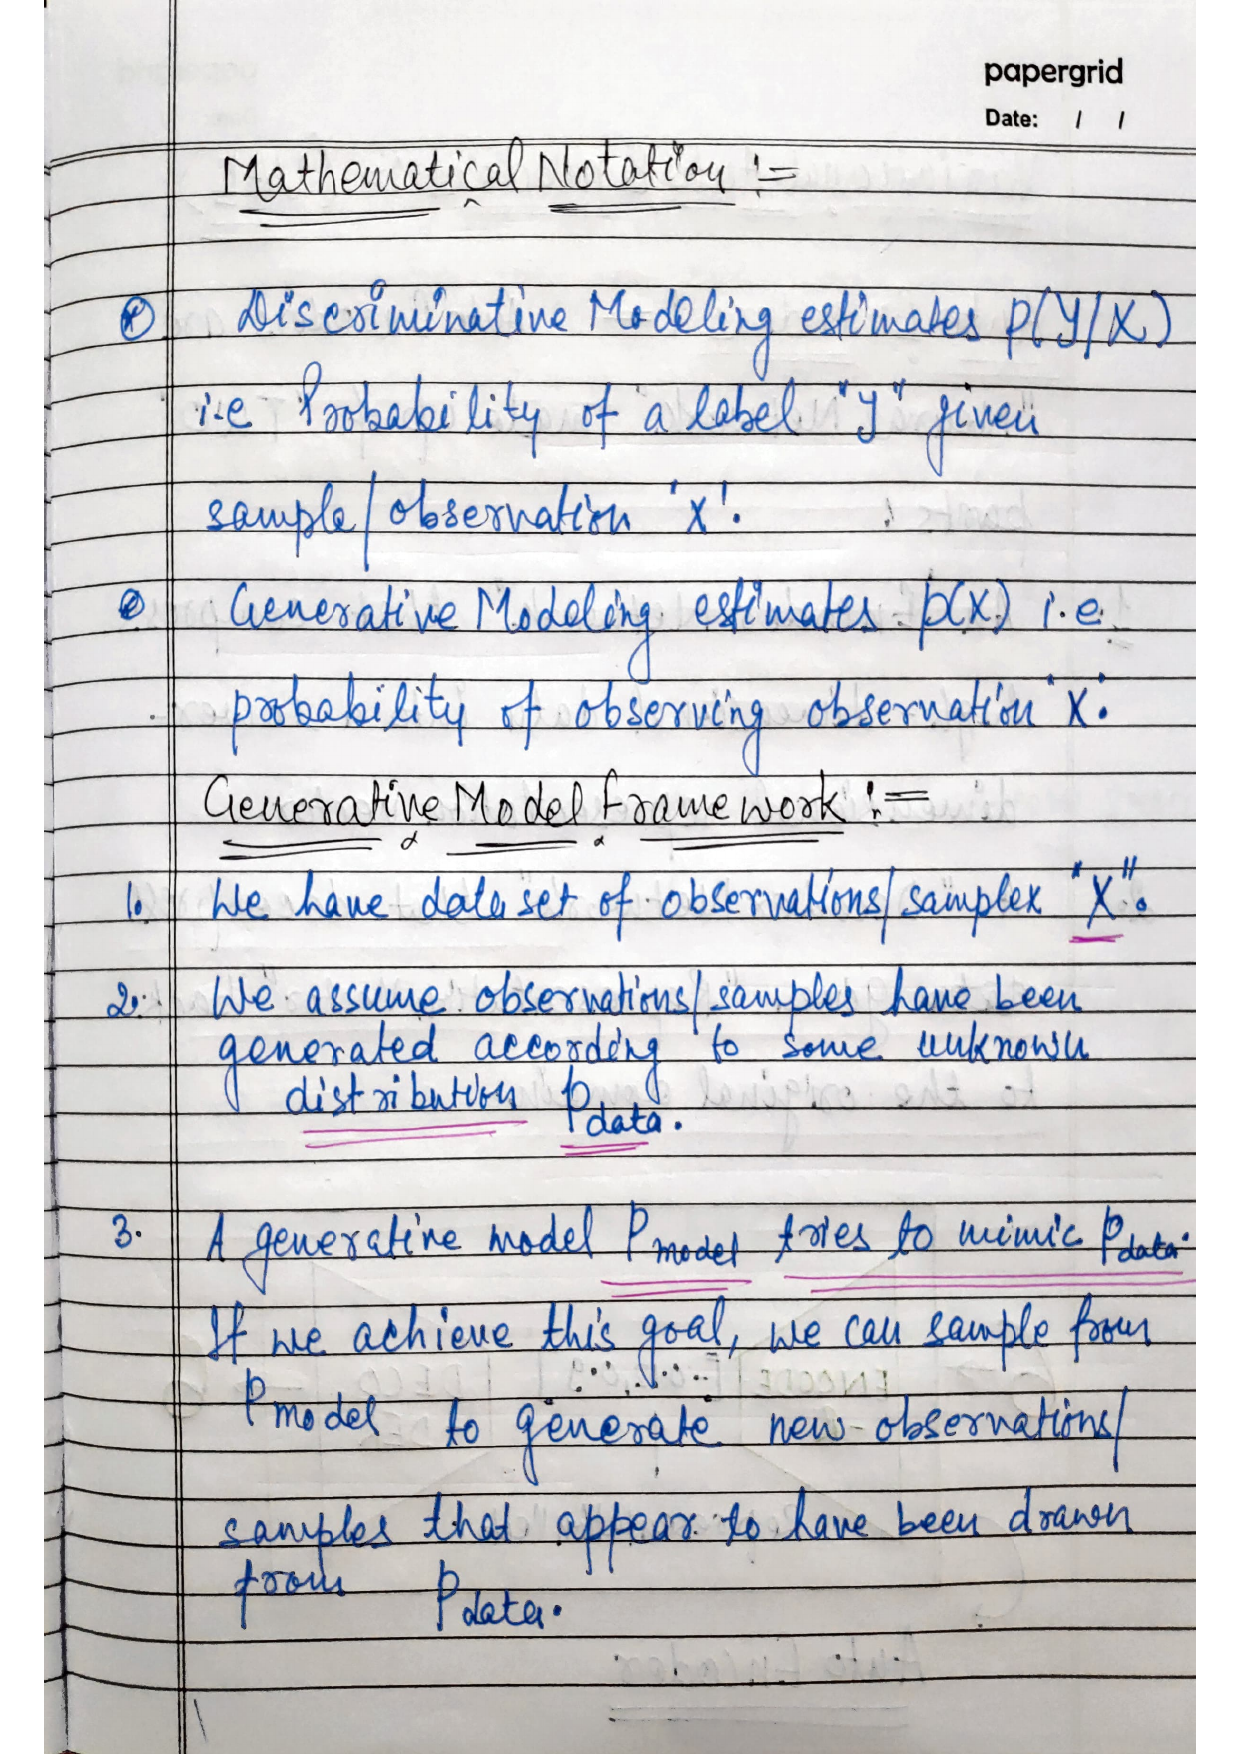 papergrid
Date: / /
Mathematical Notation :-
Discriminative Modeling estimates p(Y/X)
i.e Probability of a label "Y" given
sample/observation 'X'.
Generative Modeling estimates p(X) i.e.
probability of observing observation "X".
Generative Model Framework :-
1. We have data set of observations/samplex "X".
2. We assume observations/samples have been
generated according to some unknown
distribution Pdata.
3. A generative model Pmodel tries to mimic Pdata.
If we achieve this goal, we can sample from
Pmodel to generate new observations/
samples that appear to have been drawn
from Pdata.